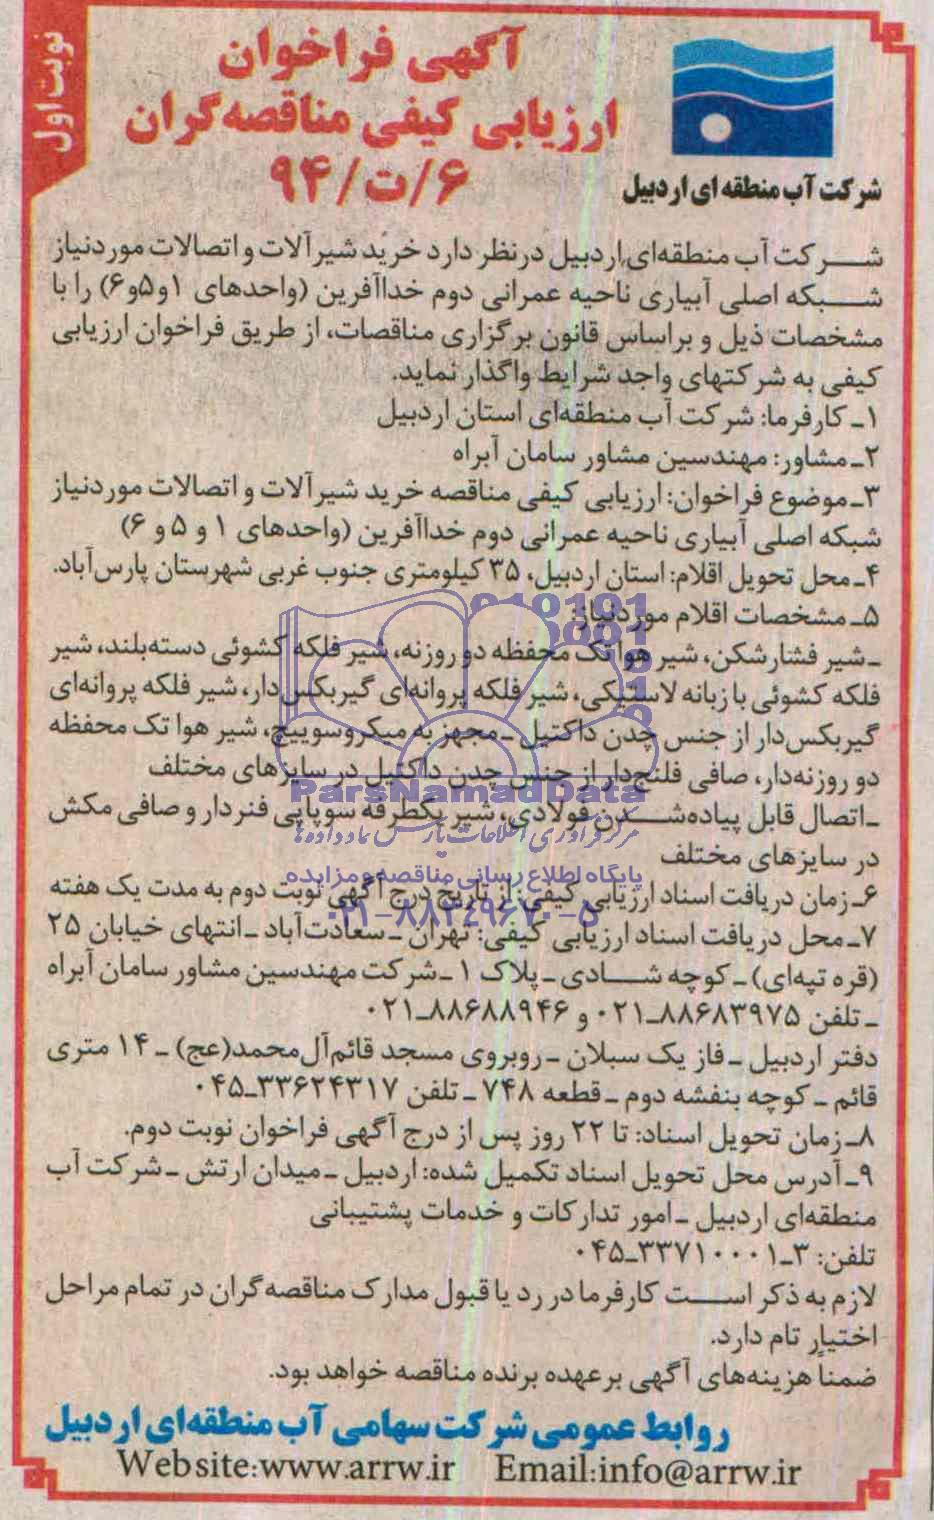 نوبت اول
آگهی فراخوان
ارزیابی کیفی مناقصه‌گران
۶/ت/۹۴
شرکت آب منطقه ای اردبیل
شرکت آب منطقه‌ای اردبیل درنظر دارد خرید شیرآلات و اتصالات موردنیاز
شبکه اصلی آبیاری ناحیه عمرانی دوم خداآفرین (واحدهای ۱و۵و۶) را با
مشخصات ذیل و براساس قانون برگزاری مناقصات، از طریق فراخوان ارزیابی
کیفی به شرکتهای واجد شرایط واگذار نماید.
۱ـ کارفرما: شرکت آب منطقه‌ای استان اردبیل
۲ـ مشاور: مهندسین مشاور سامان آبراه
۳ـ موضوع فراخوان: ارزیابی کیفی مناقصه خرید شیرآلات و اتصالات موردنیاز
شبکه اصلی آبیاری ناحیه عمرانی دوم خداآفرین (واحدهای ۱ و ۵ و ۶)
۴ـ محل تحویل اقلام: استان اردبیل، ۳۵ کیلومتری جنوب غربی شهرستان پارس‌آباد.
۵ـ مشخصات اقلام موردنیاز:
ـ شیر فشارشکن، شیر هوا تک محفظه دو روزنه، شیر فلکه کشوئی دسته‌بلند، شیر
فلکه کشوئی با زبانه لاستیکی، شیر فلکه پروانه‌ای گیربکس‌دار، شیر فلکه پروانه‌ای
گیربکس‌دار از جنس چدن داکتیل ـ مجهز به میکروسوییچ، شیر هوا تک محفظه
دو روزنه‌دار، صافی فلنج‌دار از جنس چدن داکتیل در سایزهای مختلف
ParsNamadData
ـ اتصال قابل پیاده‌شدن فولادی، شیر یکطرفه سوپاپی فنردار و صافی مکش
مرکز فرآوری اطلاعات پارس نماد داده‌ها
در سایزهای مختلف
پایگاه اطلاع رسانی مناقصه و مزایده
۶ـ زمان دریافت اسناد ارزیابی کیفی: از تاریخ درج آگهی نوبت دوم به مدت یک هفته
۰۲۱-۸۸۳۴۹۶۷۰-۵
۷ـ محل دریافت اسناد ارزیابی کیفی: تهران ـ سعادت‌آباد ـ انتهای خیابان ۲۵
(قره تپه‌ای) ـ کوچه شادی ـ پلاک ۱ ـ شرکت مهندسین مشاور سامان آبراه
ـ تلفن ۸۸۶۸۳۹۷۵ـ۰۲۱ و ۸۸۶۸۸۹۴۶ـ۰۲۱
دفتر اردبیل ـ فاز یک سبلان ـ روبروی مسجد قائم‌آل‌محمد(عج) ـ ۱۴ متری
قائم ـ کوچه بنفشه دوم ـ قطعه ۷۴۸ ـ تلفن ۳۳۶۲۴۳۱۷ـ۰۴۵
۸ـ زمان تحویل اسناد: تا ۲۲ روز پس از درج آگهی فراخوان نوبت دوم.
۹ـ آدرس محل تحویل اسناد تکمیل شده: اردبیل ـ میدان ارتش ـ شرکت آب
منطقه‌ای اردبیل ـ امور تدارکات و خدمات پشتیبانی
تلفن: ۳ـ۳۳۷۱۰۰۰۱ـ۰۴۵
لازم به ذکر است کارفرما در رد یا قبول مدارک مناقصه‌گران در تمام مراحل
اختیار تام دارد.
ضمناً هزینه‌های آگهی برعهده برنده مناقصه خواهد بود.
روابط عمومی شرکت سهامی آب منطقه‌ای اردبیل
Website:www.arrw.ir Email:info@arrw.ir